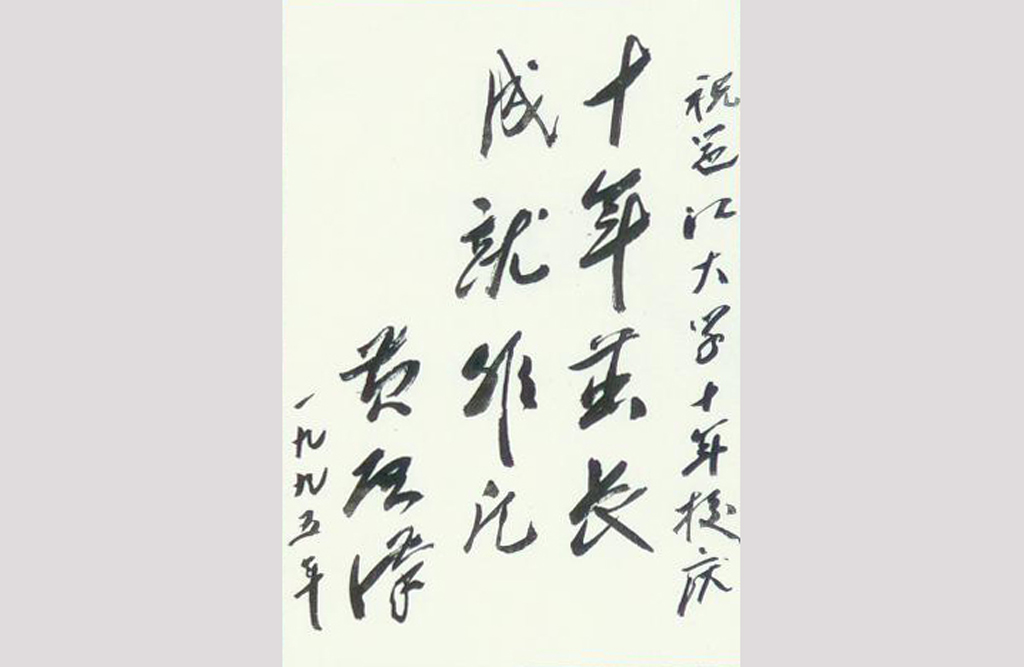 祝江大学十年校庆
十年茁长
成就非凡
黄泽
一九九五年